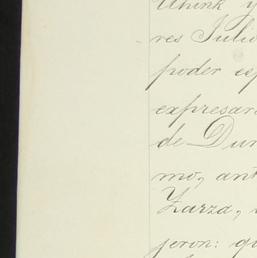 think y
res Julio
poder esp
expresar
de Dur
mo, ant
Zarza,
jeron: qu